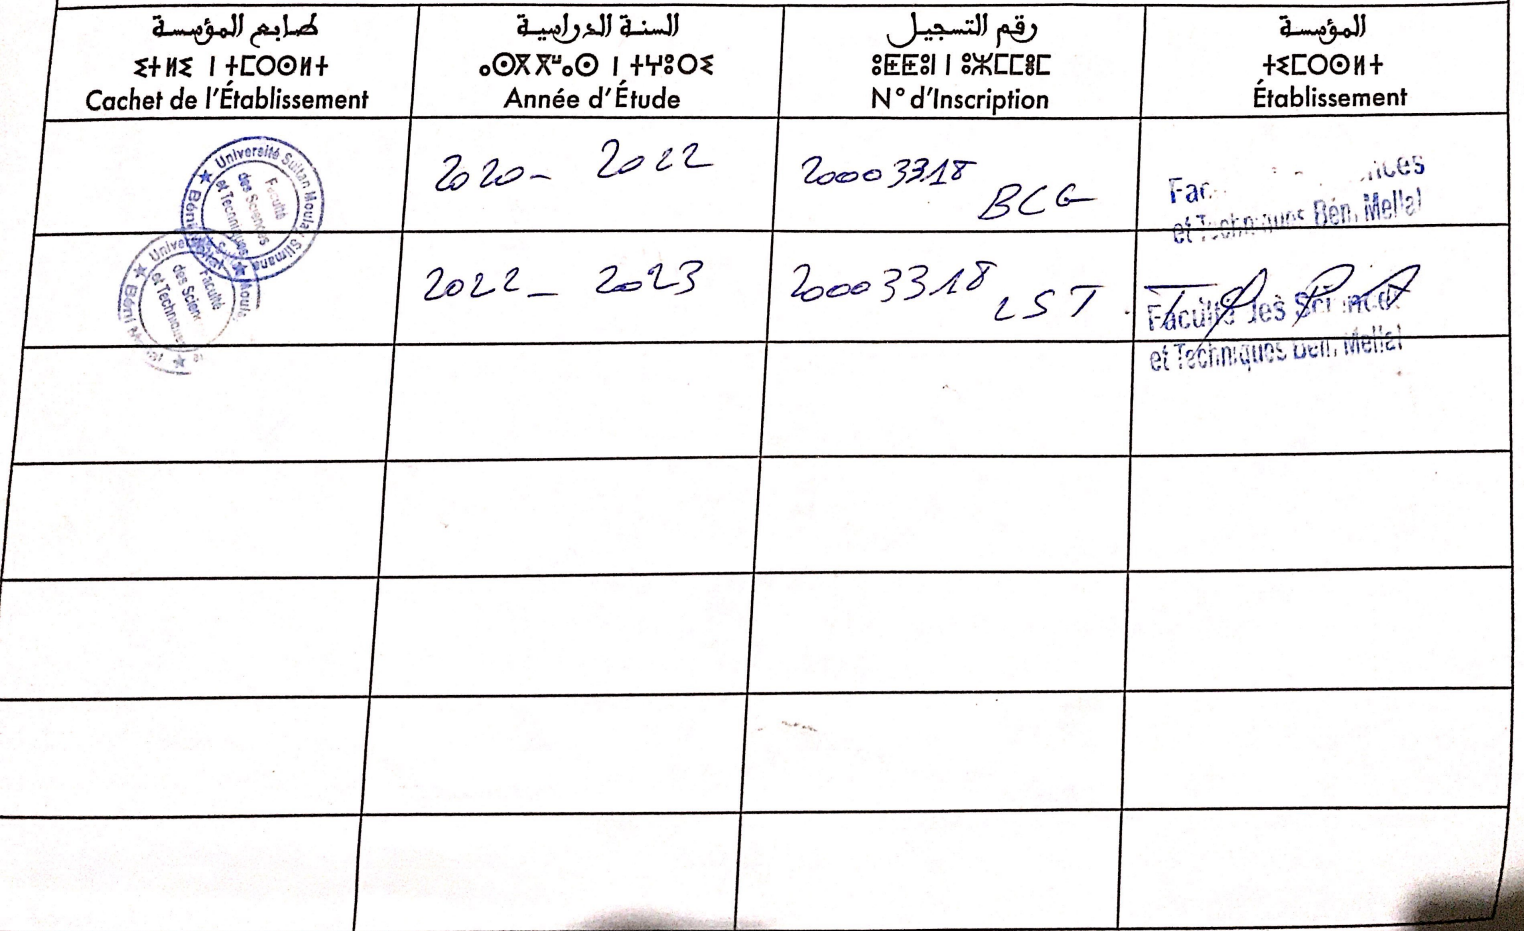 طابع المؤسسة
ⵉⵜⵍⵉ ⵏ ⵜⵎⵔⵙⵍⵜ
Cachet de l'Établissement
السنة الدراسية
ⴰⵙⴳⴳⵯⴰⵙ ⵏ ⵜⵖⵓⵔⵉ
Année d'Étude
رقم التسجيل
ⵓⵟⵟⵓⵏ ⵏ ⵓⵣⵎⵎⵎ
N° d'Inscription
المؤسسة
ⵜⵉⵎⵔⵙⵍⵜ
Établissement
Université Sultan Moulay Slimane
Faculté
des Sciences
et Techniques
2020- 2022
20003318
BCG
et Techniques Béni Mellal
Faculté
des Sciences
et Techniques
2022- 2023
20003318
LST
Faculté des Sciences
et Techniques Béni Mellal